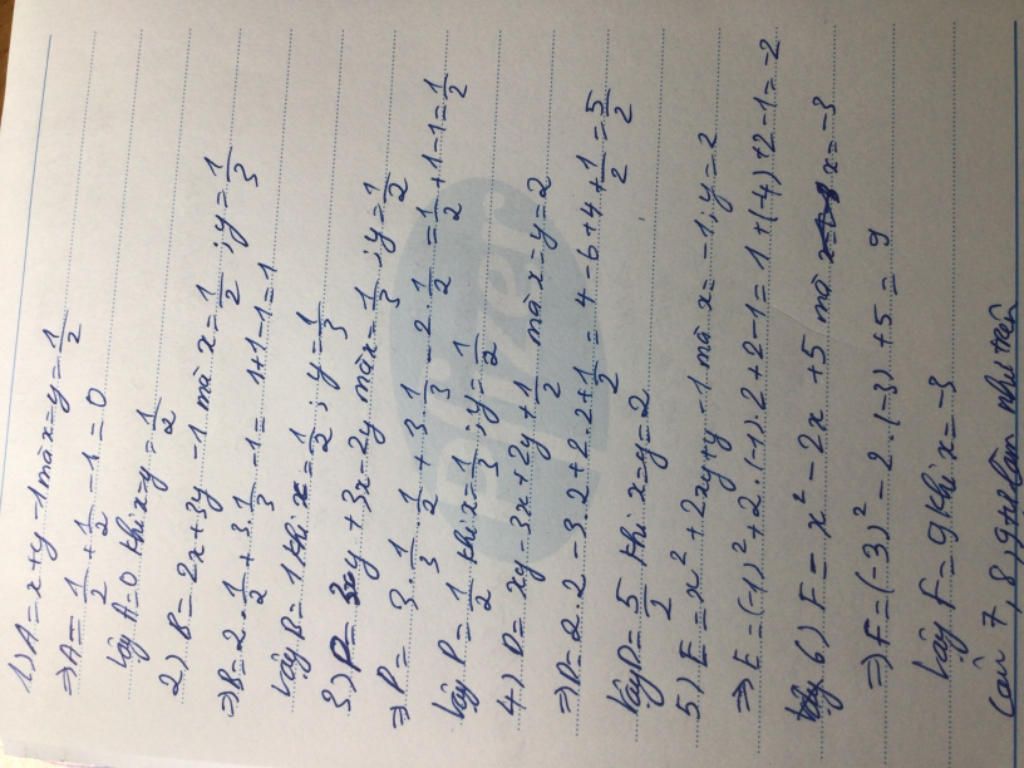 1) A = x + y - 1 mà x = y = 1/2
⇒ A = 1/2 + 1/2 - 1 = 0
Vậy A = 0 khi x = y = 1/2
2) B = 2x + 3y - 1 mà x = 1/2 ; y = 1/3
⇒ B = 2 . 1/2 + 3 . 1/3 - 1 = 1 + 1 - 1 = 1
Vậy B = 1 khi x = 1/2 ; y = 1/3
3) P = 3xy + 3x - 2y mà x = 1/3 ; y = 1/2
⇒ P = 3 . 1/3 . 1/2 + 3 . 1/3 - 2 . 1/2 = 1/2 + 1 - 1 = 1/2
Vậy P = 1/2 khi x = 1/3 ; y = 1/2
4) D = xy - 3x + 2y + 1/2 mà x = y = 2
⇒ D = 2 . 2 - 3 . 2 + 2 . 2 + 1/2 = 4 - 6 + 4 + 1/2 = 5/2
Vậy D = 5/2 khi x = y = 2
5) E = x² + 2xy + y - 1 mà x = -1 ; y = 2
⇒ E = (-1)² + 2 . (-1) . 2 + 2 - 1 = 1 + (-4) + 2 - 1 = -2
6) F = x² - 2x + 5 mà x = -3
⇒ F = (-3)² - 2 . (-3) + 5 = 9
Vậy F = 9 khi x = -3
Câu 7, 8, 9 tự làm như trên